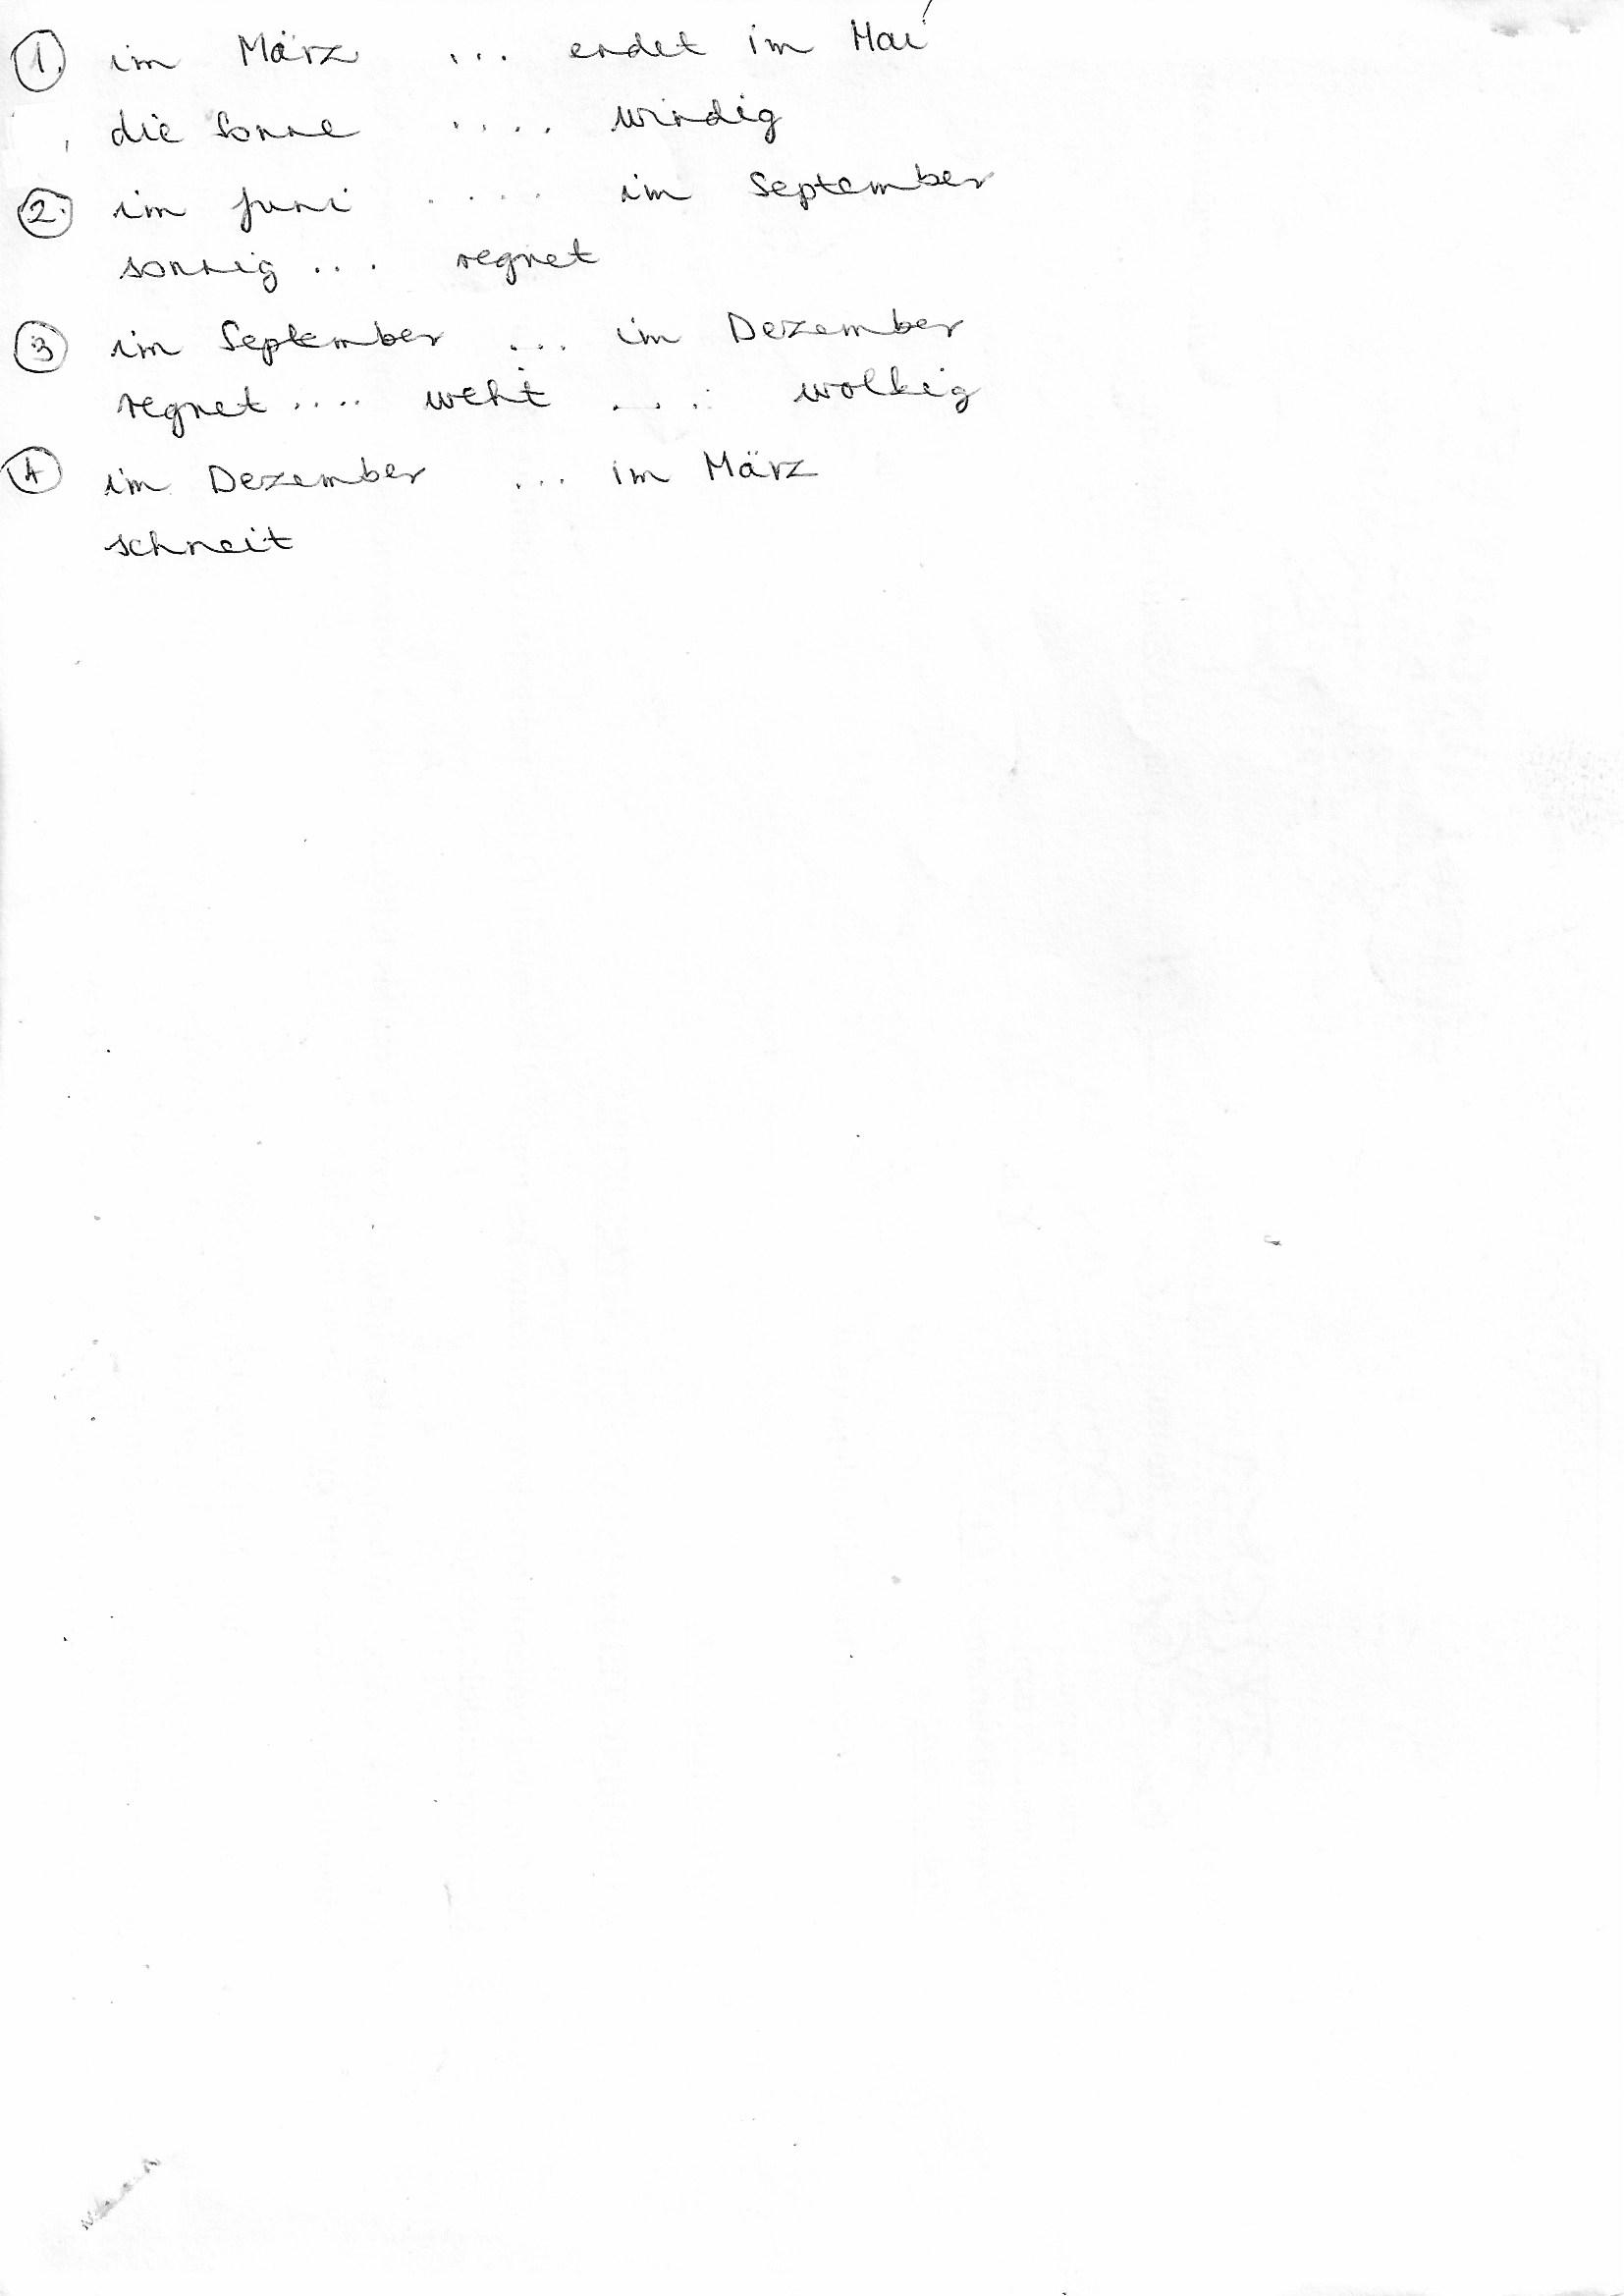 1. im März ... endet im Mai
die Sonne .... windig
2. im Juni .... im September
sonnig ... regnet
3 im September ... im Dezember
regnet .... weht .... wolkig
4 im Dezember ... im März
schneit